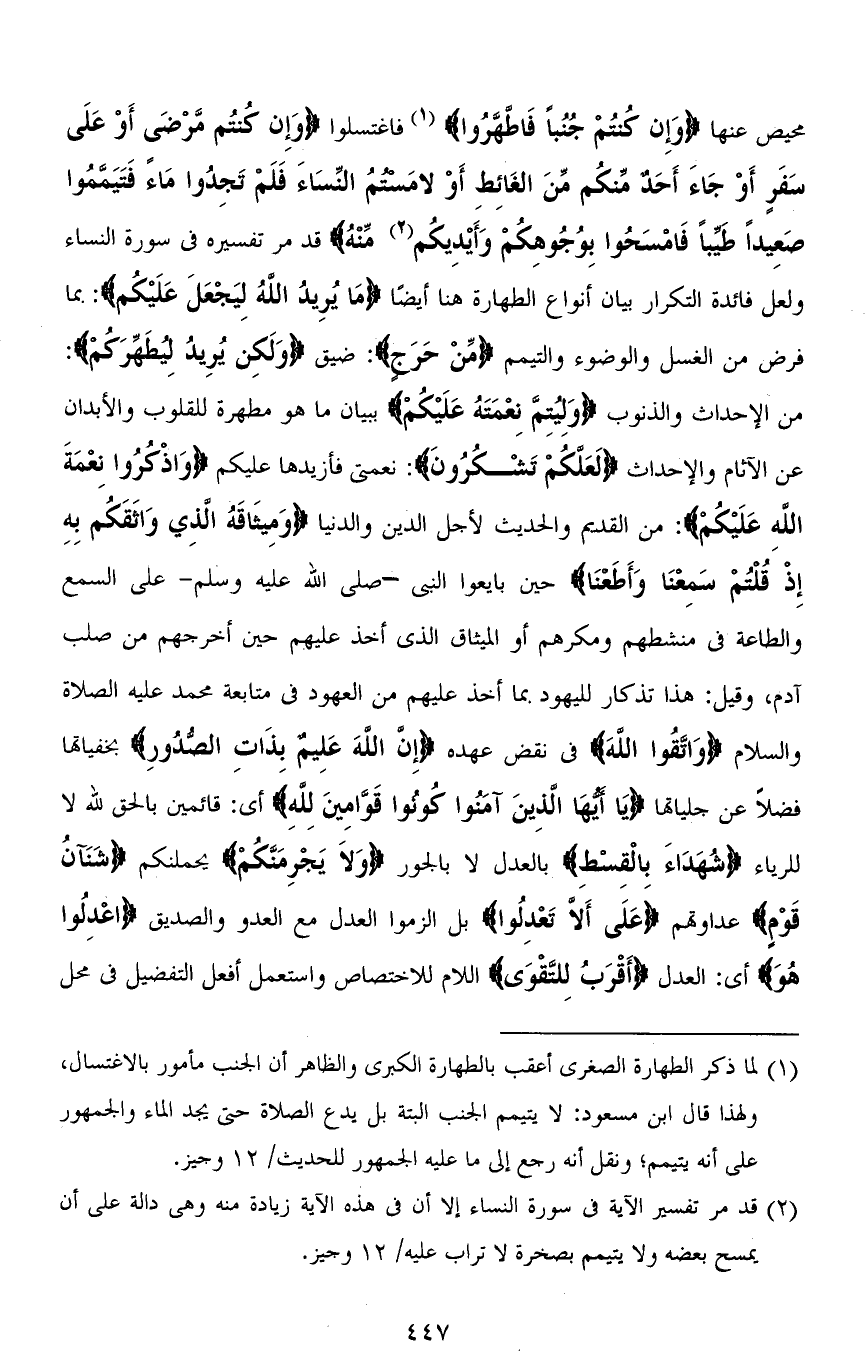 محيص عنها ﴿وَإِن كُنتُمْ جُنُباً فَاطَّهَّرُوا﴾ (١) فاغتسلوا ﴿وَإِن كُنتُم مَّرْضَى أَوْ عَلَى
سَفَرٍ أَوْ جَاءَ أَحَدٌ مِّنكُم مِّنَ الغَائِطِ أَوْ لامَسْتُمُ النِّسَاءَ فَلَمْ تَجِدُوا مَاءً فَتَيَمَّمُوا
صَعِيداً طَيِّباً فَامْسَحُوا بِوُجُوهِكُمْ وَأَيْدِيكُم(٢) مِّنْهُ﴾ قد مر تفسيره فى سورة النساء
ولعل فائدة التكرار بيان أنواع الطهارة هنا أيضًا ﴿مَا يُرِيدُ اللَّهُ لِيَجْعَلَ عَلَيْكُم﴾: بما
فرض من الغسل والوضوء والتيمم ﴿مِّنْ حَرَجٍ﴾: ضيق ﴿وَلَكِن يُرِيدُ لِيُطَهِّرَكُمْ﴾:
من الإحداث والذنوب ﴿وَلِيُتِمَّ نِعْمَتَهُ عَلَيْكُمْ﴾ ببيان ما هو مطهرة للقلوب والأبدان
عن الآثام والإحداث ﴿لَعَلَّكُمْ تَشْـــكُرُونَ﴾: نعمتى فأزيدها عليكم ﴿وَاذْكُرُوا نِعْمَةَ
اللَّهِ عَلَيْكُمْ﴾: من القديم والحديث لأجل الدين والدنيا ﴿وَمِيثَاقَهُ الَّذِي وَاثَقَكُم بِهِ
إِذْ قُلْتُمْ سَمِعْنَا وَأَطَعْنَا﴾ حين بايعوا النبى –صلى الله عليه وسلم– على السمع
والطاعة فى منشطهم ومكرهم أو الميثاق الذى أخذ عليهم حين أخرجهم من صلب
آدم، وقيل: هذا تذكار لليهود بما أخذ عليهم من العهود فى متابعة محمد عليه الصلاة
والسلام ﴿وَاتَّقُوا اللَّهَ﴾ فى نقض عهده ﴿إِنَّ اللَّهَ عَلِيمٌ بِذَاتِ الصُّدُورِ﴾ بخفياتها
فضلاً عن جلياتها ﴿يَا أَيُّهَا الَّذِينَ آمَنُوا كُونُوا قَوَّامِينَ لِلَّهِ﴾ أى: قائمين بالحق لله لا
للرياء ﴿شُهَدَاءَ بِالْقِسْطِ﴾ بالعدل لا بالجور ﴿وَلاَ يَجْرِمَنَّكُمْ﴾ يحملنكم ﴿شَنَآنُ
قَوْمٍ﴾ عداوتهم ﴿عَلَى أَلاَّ تَعْدِلُوا﴾ بل الزموا العدل مع العدو والصديق ﴿اعْدِلُوا
هُوَ﴾ أى: العدل ﴿أَقْرَبُ لِلتَّقْوَى﴾ اللام للاختصاص واستعمل أفعل التفضيل فى محل
(١) لما ذكر الطهارة الصغرى أعقب بالطهارة الكبرى والظاهر أن الجنب مأمور بالاغتسال،
ولهذا قال ابن مسعود: لا يتيمم الجنب البتة بل يدع الصلاة حتى يجد الماء والجمهور
على أنه يتيمم؛ ونقل أنه رجع إلى ما عليه الجمهور للحديث/ ١٢ وجيز.
(٢) قد مر تفسير الآية فى سورة النساء إلا أن فى هذه الآية زيادة منه وهى دالة على أن
يمسح بعضه ولا يتيمم بصخرة لا تراب عليه/ ١٢ وجيز.
٤٤٧